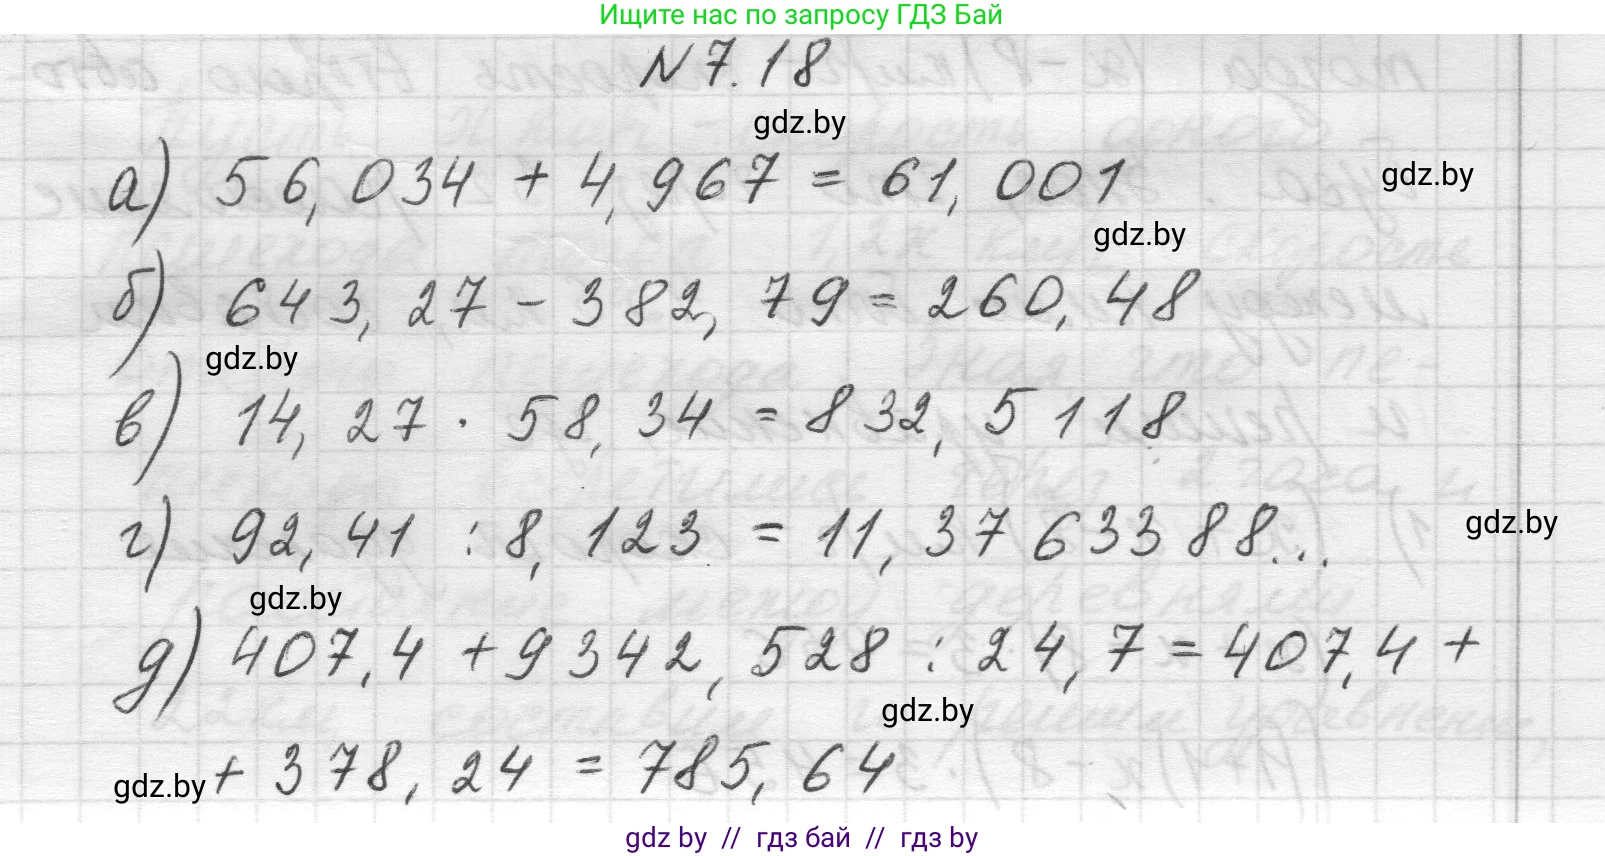 Ищите нас по запросу ГДЗ Бай
N 7.18
gdz.by
а) 56,034 + 4,967 = 61,001
gdz.by
gdz.by
б) 643,27 - 382,79 = 260,48
gdz.by
в) 14,27 · 58,34 = 832,5118
г) 92,41 : 8,123 = 11,3763388...
gdz.by
gdz.by
д) 407,4 + 9342,528 : 24,7 = 407,4 +
gdz.by
+ 378,24 = 785,64
gdz.by
gdz by // гдз бай // гдз by